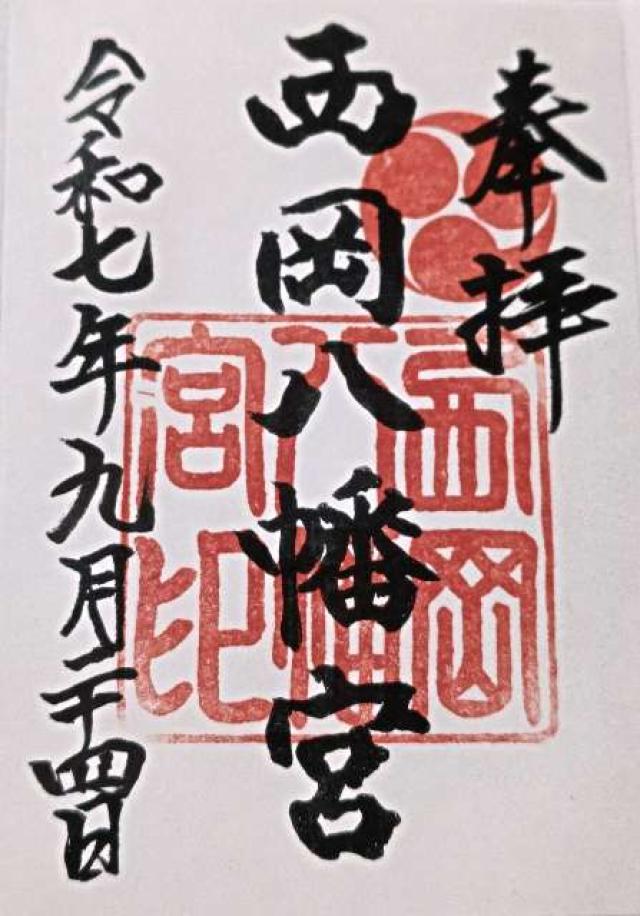 奉拝
西岡八幡宮
令和七年九月二十四日
西岡
八幡
宮印